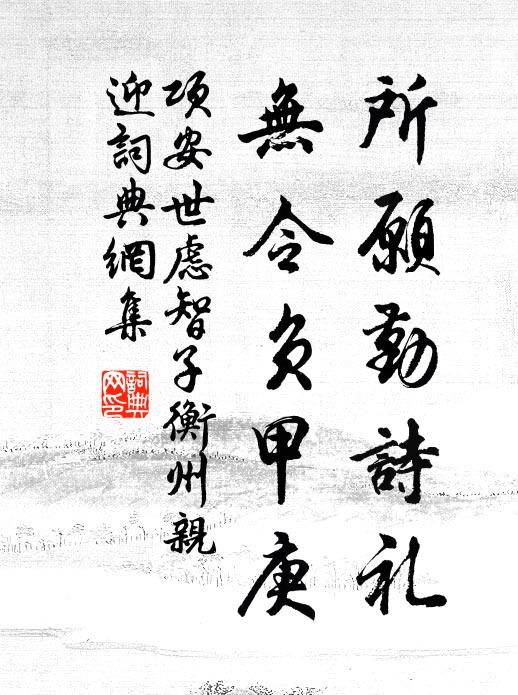 所願勤詩礼
無令負甲庚
項安世處智子衡州親
迎詞典網集
詞典
网印